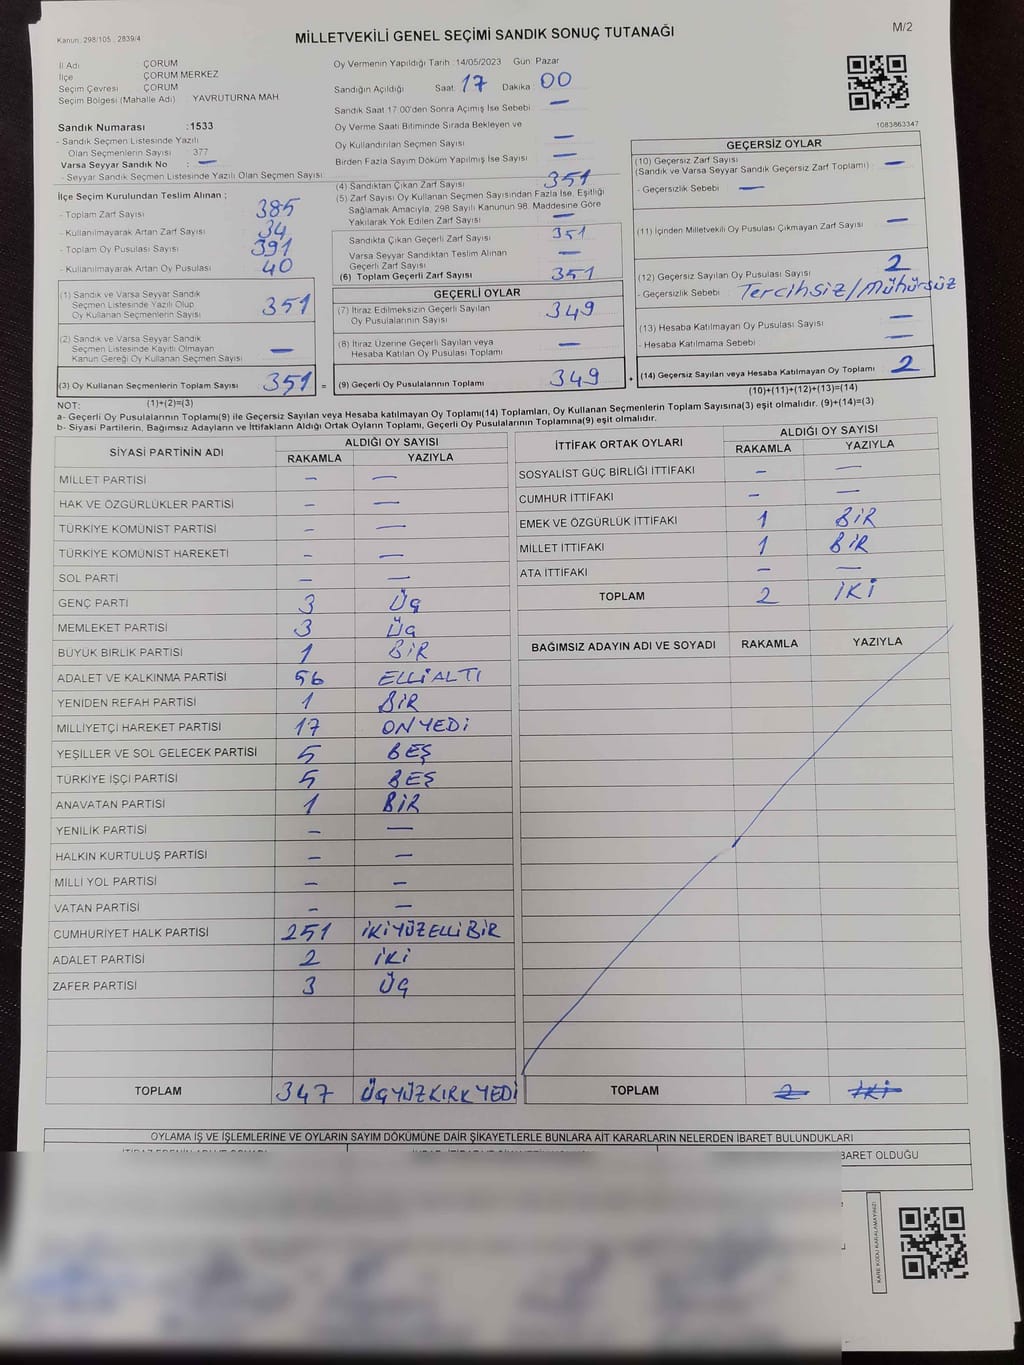 Kanun: 298/105 ; 2839/4
MİLLETVEKİLİ GENEL SEÇİMİ SANDIK SONUÇ TUTANAĞI
M/2
İl Adı ÇORUM
İlçe ÇORUM MERKEZ
Seçim Çevresi ÇORUM
Seçim Bölgesi (Mahalle Adı) YAVRUTURNA MAH
Sandık Numarası :1533
- Sandık Seçmen Listesinde Yazılı
Olan Seçmenlerin Sayısı 377
Varsa Seyyar Sandık No : —
- Seyyar Sandık Seçmen Listesinde Yazılı Olan Seçmen Sayısı
İlçe Seçim Kurulundan Teslim Alınan ;
- Toplam Zarf Sayısı 385
- Kullanılmayarak Artan Zarf Sayısı 34
- Toplam Oy Pusulası Sayısı 391
- Kullanılmayarak Artan Oy Pusulası 40
(1) Sandık ve Varsa Seyyar Sandık
Seçmen Listesinde Yazılı Olup
Oy Kullanan Seçmenlerin Sayısı 351
(2) Sandık ve Varsa Seyyar Sandık
Seçmen Listesinde Kayıtlı Olmayan
Kanun Gereği Oy Kullanan Seçmen Sayısı —
(3) Oy Kullanan Seçmenlerin Toplam Sayısı 351 =
(1)+(2)=(3)
Oy Vermenin Yapıldığı Tarih :14/05/2023 Gün: Pazar
Sandığın Açıldığı Saat: 17 Dakika 00
Sandık Saat 17:00'den Sonra Açımış İse Sebebi —
Oy Verme Saati Bitiminde Sırada Bekleyen ve
Oy Kullandırılan Seçmen Sayısı —
Birden Fazla Sayım Döküm Yapılmış İse Sayısı —
(4) Sandıktan Çıkan Zarf Sayısı 351
(5) Zarf Sayısı Oy Kullanan Seçmen Sayısından Fazla İse, Eşitliği
Sağlamak Amacıyla, 298 Sayılı Kanunun 98. Maddesine Göre
Yakılarak Yok Edilen Zarf Sayısı —
Sandıkta Çıkan Geçerli Zarf Sayısı 351
Varsa Seyyar Sandıktan Teslim Alınan
Geçerli Zarf Sayısı —
(6) Toplam Geçerli Zarf Sayısı 351
GEÇERLİ OYLAR
(7) İtiraz Edilmeksizin Geçerli Sayılan
Oy Pusulalarının Sayısı 349
(8) İtiraz Üzerine Geçerli Sayılan veya
Hesaba Katılan Oy Pusulası Toplamı —
(9) Geçerli Oy Pusulalarının Toplamı 349 +
1083863347
GEÇERSİZ OYLAR
(10) Geçersiz Zarf Sayısı
(Sandık ve Varsa Seyyar Sandık Geçersiz Zarf Toplamı) —
- Geçersizlik Sebebi —
(11) İçinden Milletvekili Oy Pusulası Çıkmayan Zarf Sayısı —
(12) Geçersiz Sayılan Oy Pusulası Sayısı 2
- Geçersizlik Sebebi Tercihsiz/Mühürsüz
(13) Hesaba Katılmayan Oy Pusulası Sayısı —
- Hesaba Katılmama Sebebi : —
(14) Geçersiz Sayılan veya Hesaba Katılmayan Oy Toplamı 2
(10)+(11)+(12)+(13)=(14)
NOT:
a- Geçerli Oy Pusulalarının Toplamı(9) ile Geçersiz Sayılan veya Hesaba katılmayan Oy Toplamı(14) Toplamları, Oy Kullanan Seçmenlerin Toplam Sayısına(3) eşit olmalıdır. (9)+(14)=(3)
b- Siyasi Partilerin, Bağımsız Adayların ve İttifakların Aldığı Ortak Oyların Toplamı, Geçerli Oy Pusulalarının Toplamına(9) eşit olmalıdır.
SİYASİ PARTİNİN ADI ALDIĞI OY SAYISI
RAKAMLA YAZIYLA
MİLLET PARTİSİ — —
HAK VE ÖZGÜRLÜKLER PARTİSİ — —
TÜRKİYE KOMÜNİST PARTİSİ — —
TÜRKİYE KOMÜNİST HAREKETİ — —
SOL PARTİ — —
GENÇ PARTİ 3 ÜÇ
MEMLEKET PARTİSİ 3 ÜÇ
BÜYÜK BİRLİK PARTİSİ 1 BİR
ADALET VE KALKINMA PARTİSİ 56 ELLİALTI
YENİDEN REFAH PARTİSİ 1 BİR
MİLLİYETÇİ HAREKET PARTİSİ 17 ONYEDİ
YEŞİLLER VE SOL GELECEK PARTİSİ 5 BEŞ
TÜRKİYE İŞÇİ PARTİSİ 5 BEŞ
ANAVATAN PARTİSİ 1 BİR
YENİLİK PARTİSİ — —
HALKIN KURTULUŞ PARTİSİ — —
MİLLİ YOL PARTİSİ — —
VATAN PARTİSİ — —
CUMHURİYET HALK PARTİSİ 251 İKİYÜZELLİBİR
ADALET PARTİSİ 2 İKİ
ZAFER PARTİSİ 3 ÜÇ
TOPLAM 347 ÜÇYÜZKIRKYEDİ
İTTİFAK ORTAK OYLARI ALDIĞI OY SAYISI
RAKAMLA YAZIYLA
SOSYALİST GÜÇ BİRLİĞİ İTTİFAKI — —
CUMHUR İTTİFAKI — —
EMEK VE ÖZGÜRLÜK İTTİFAKI 1 BİR
MİLLET İTTİFAKI 1 BİR
ATA İTTİFAKI — —
TOPLAM 2 İKİ
BAĞIMSIZ ADAYIN ADI VE SOYADI RAKAMLA YAZIYLA
TOPLAM 2 İKİ
OYLAMA İŞ VE İŞLEMLERİNE VE OYLARIN SAYIM DÖKÜMÜNE DAİR ŞİKAYETLERLE BUNLARA AİT KARARLARIN NELERDEN İBARET BULUNDUKLARI
BARET OLDUĞU
KARE KODU KARALAMAYINIZ!